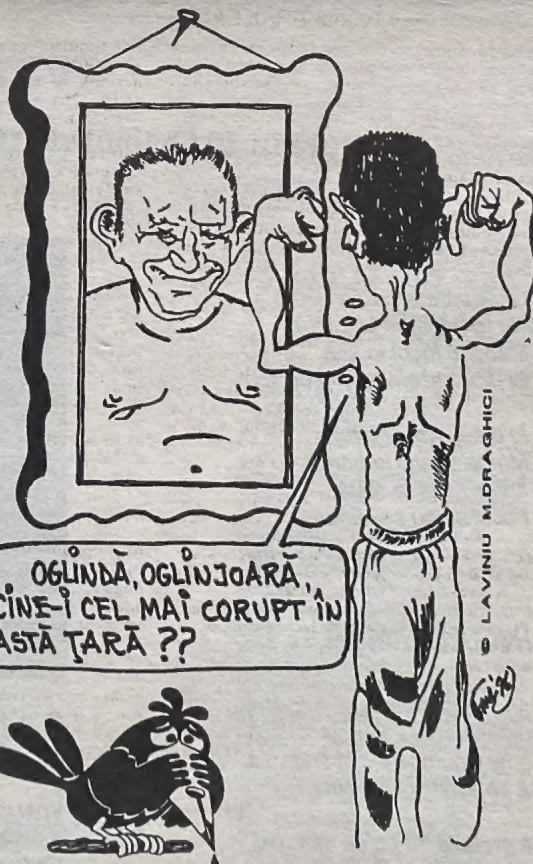 OGLINDĂ, OGLINJOARĂ,
CINE-I CEL MAI CORUPT ÎN
ASTĂ ŢARĂ ??
© LAVINIU M.DRAGHICI